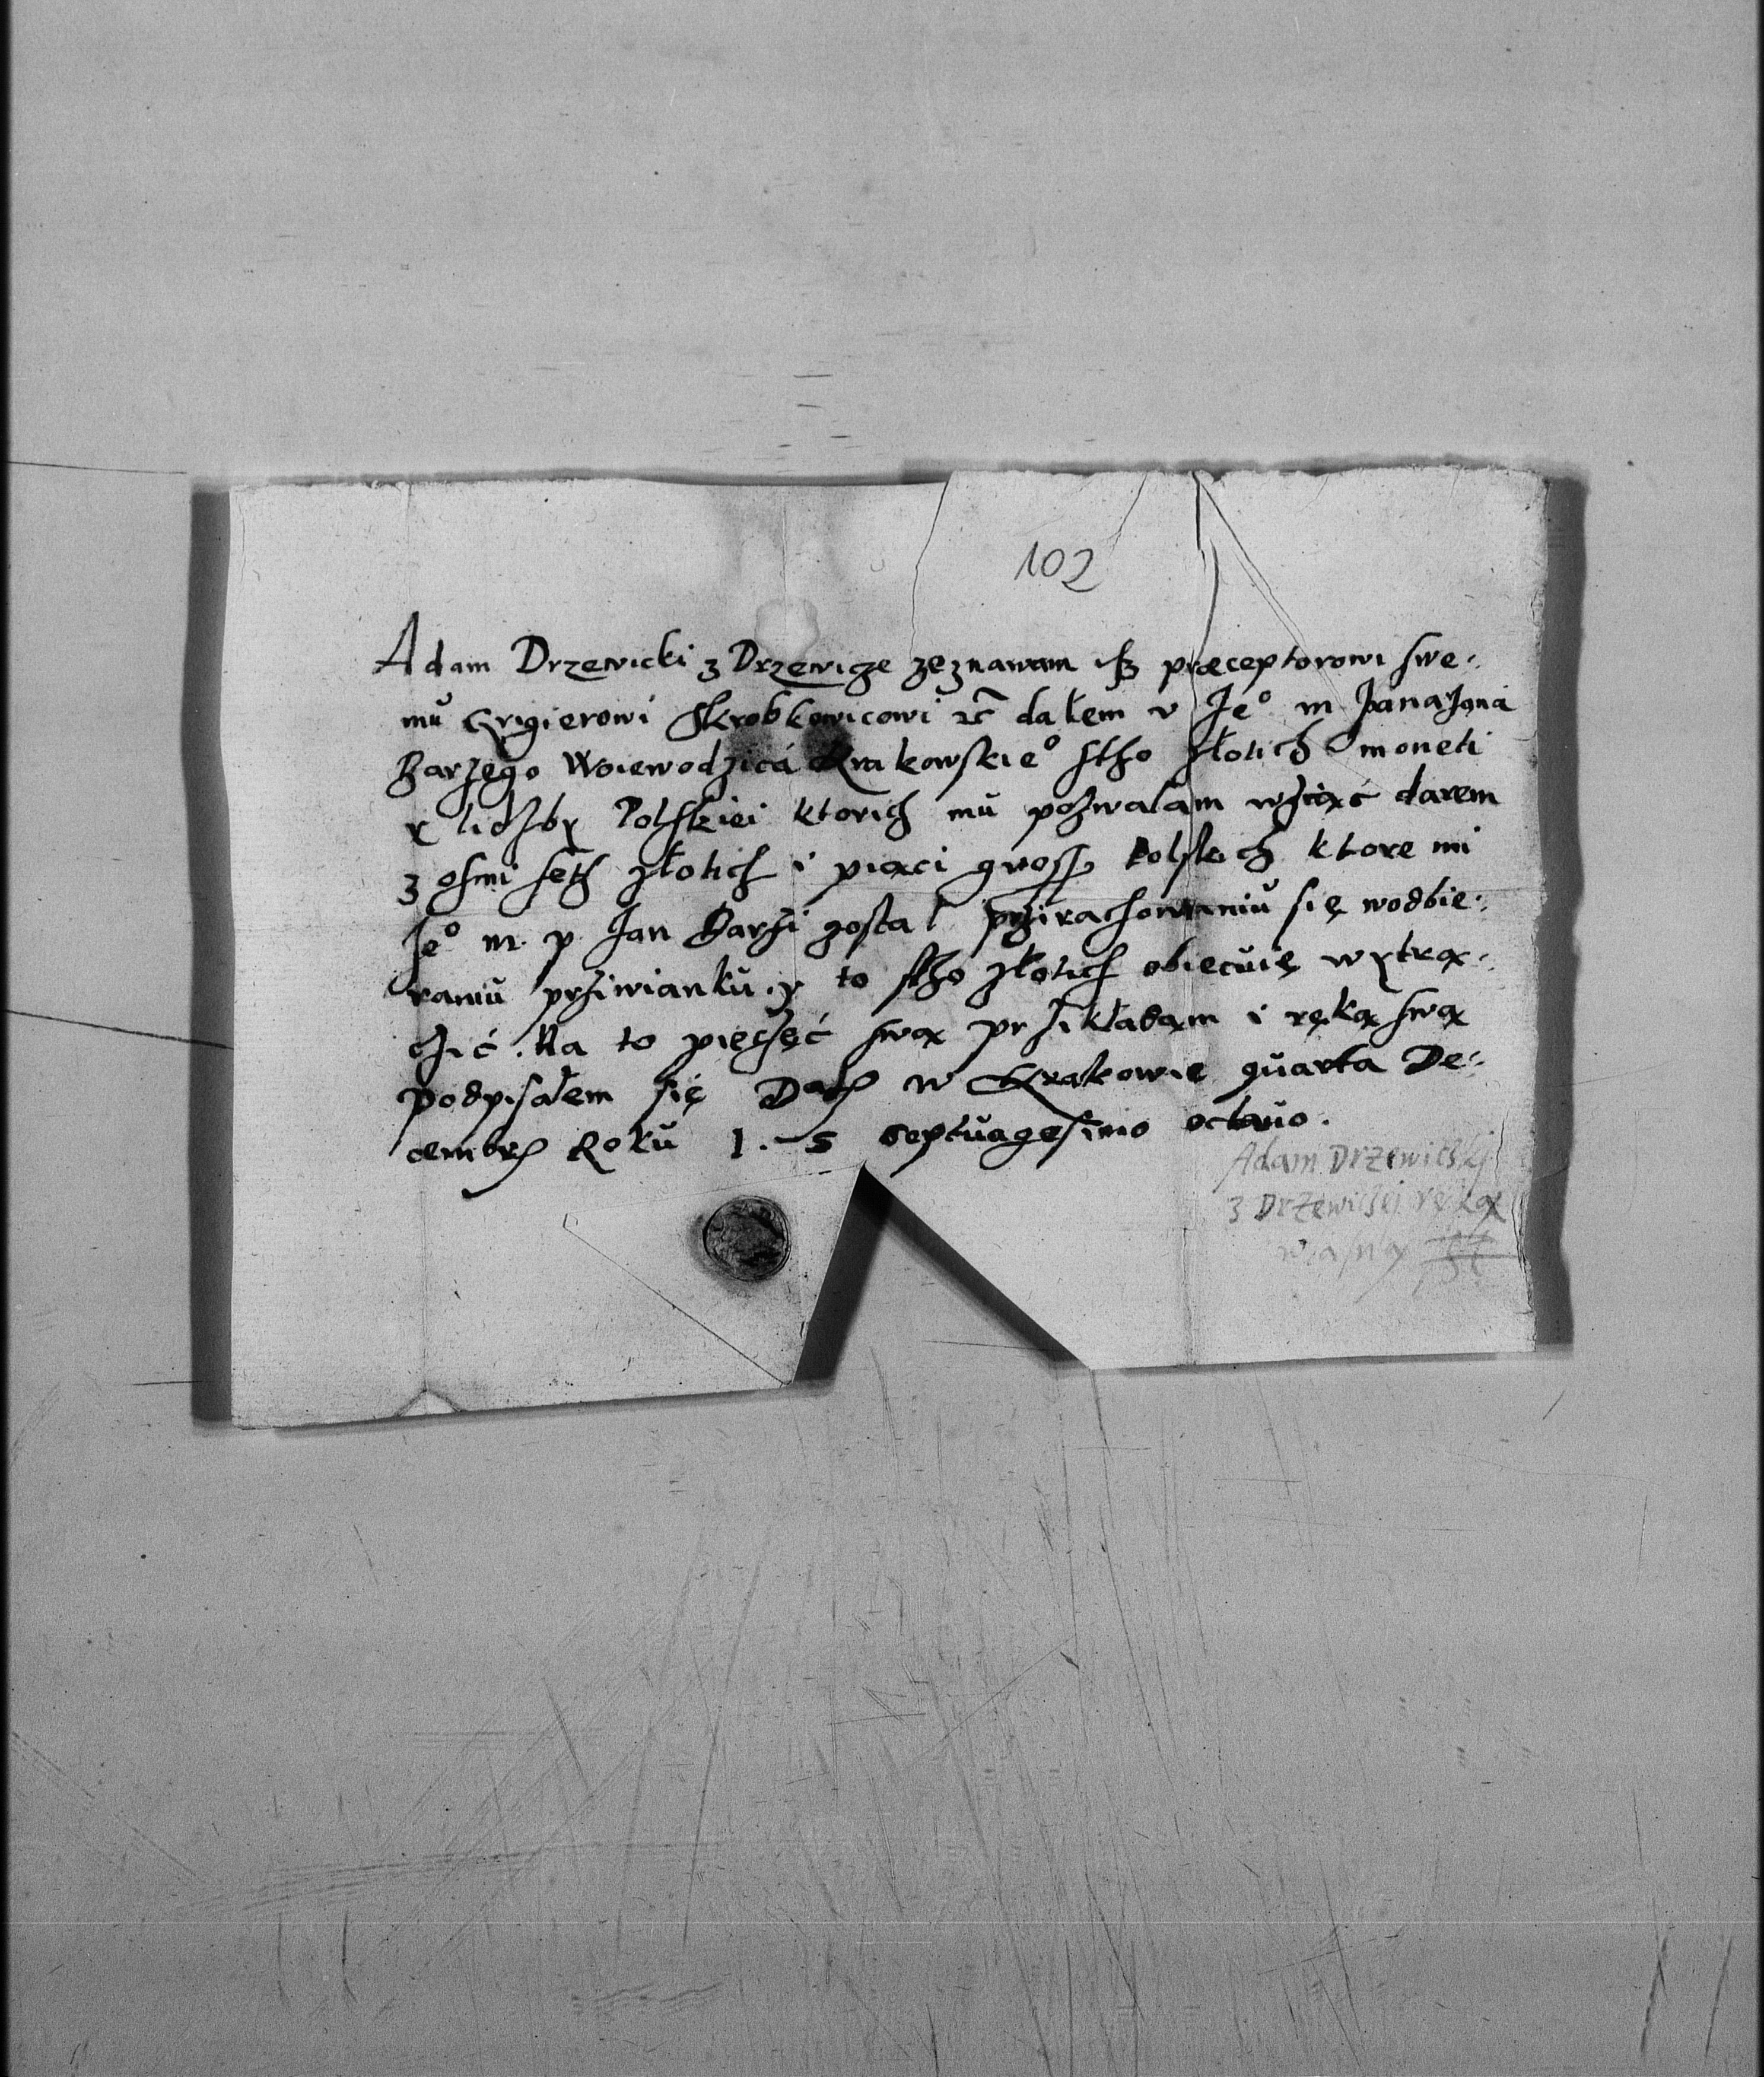 102
Adam Drzewicki z Drzewicze zeznawam isz præceptorowi swe-
mu Grigierowi Skrobkowicowi etc dałem v Je° m Pana Jana
Barzego Woiewodzicá Krakowskie° stho złotich moneti
y liczby Polskiei ktorich mu pozwalam wziąć darem
z osmi seth złotich i piąci gross Polskich ktore mi
Je° m. p Jan Barzi został przirachowaniu się wodbie-
raniu prziwianku. y to stho złotich obiecuię wytrą-
czić. Na to pieczęć swą przikładam i ręką swą
podpisałem się Dath w Krakowie quarta De-
cembr Roku 1.5 septuagesimo octauo.
Adam Drzewiczkj
z Drzewiczei ręką
własną